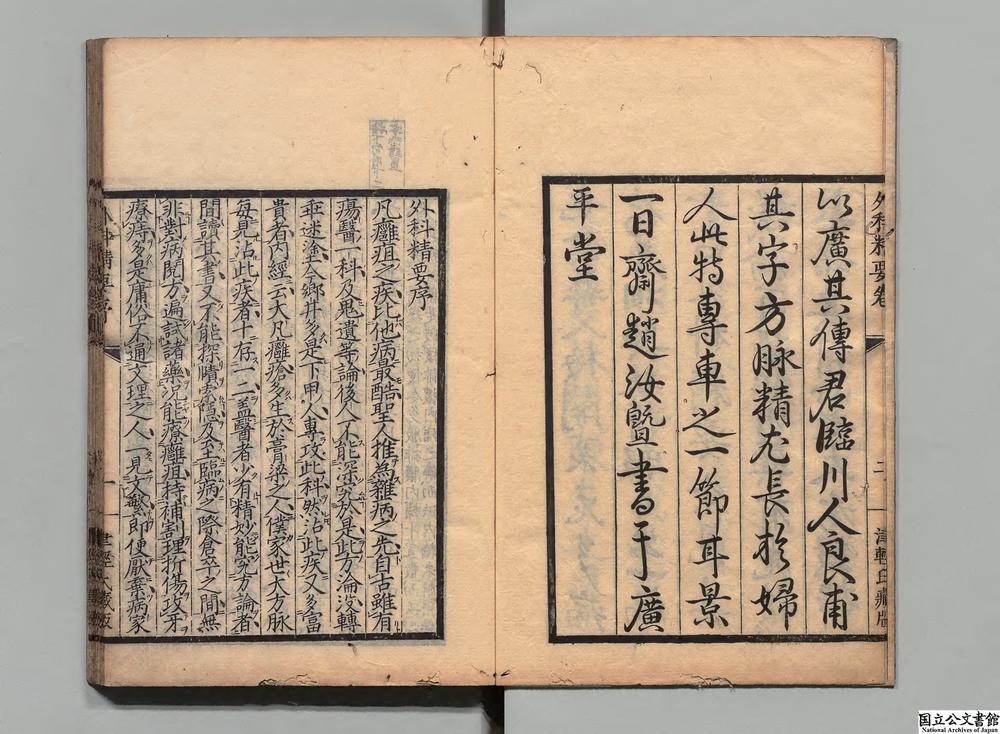 外科精要卷
二
津輕氏藏版
以廣其傳君臨川人良甫
其字方脉精尤長於婦
人此特專車之一節耳景
一日齋趙汝曁書于廣
平堂
外科精要序
凡癰疽之疾比他病最酷聖人推為雜病之先自古雖有
瘍醫一科及鬼遺等論後人不能深究於是此方淪沒轉
乖迷塗今鄉井多是下甲人專攻此科然沾此疾又多富
貴者內經云大凡癰瘡多生於膏梁之人僕家世大方脉
每見沾此疾者十存一二蓋醫者少有精妙能究方論者
間讀其書又不能探賾索隱及至臨病之際倉卒之間無
非對病閱方遍試諸藥況能療癰疽持補割理折傷攻牙
療痔多是庸俗不通文理之人一見文繁即便厭棄病家
一
國立公文書館
National Archives of Japan